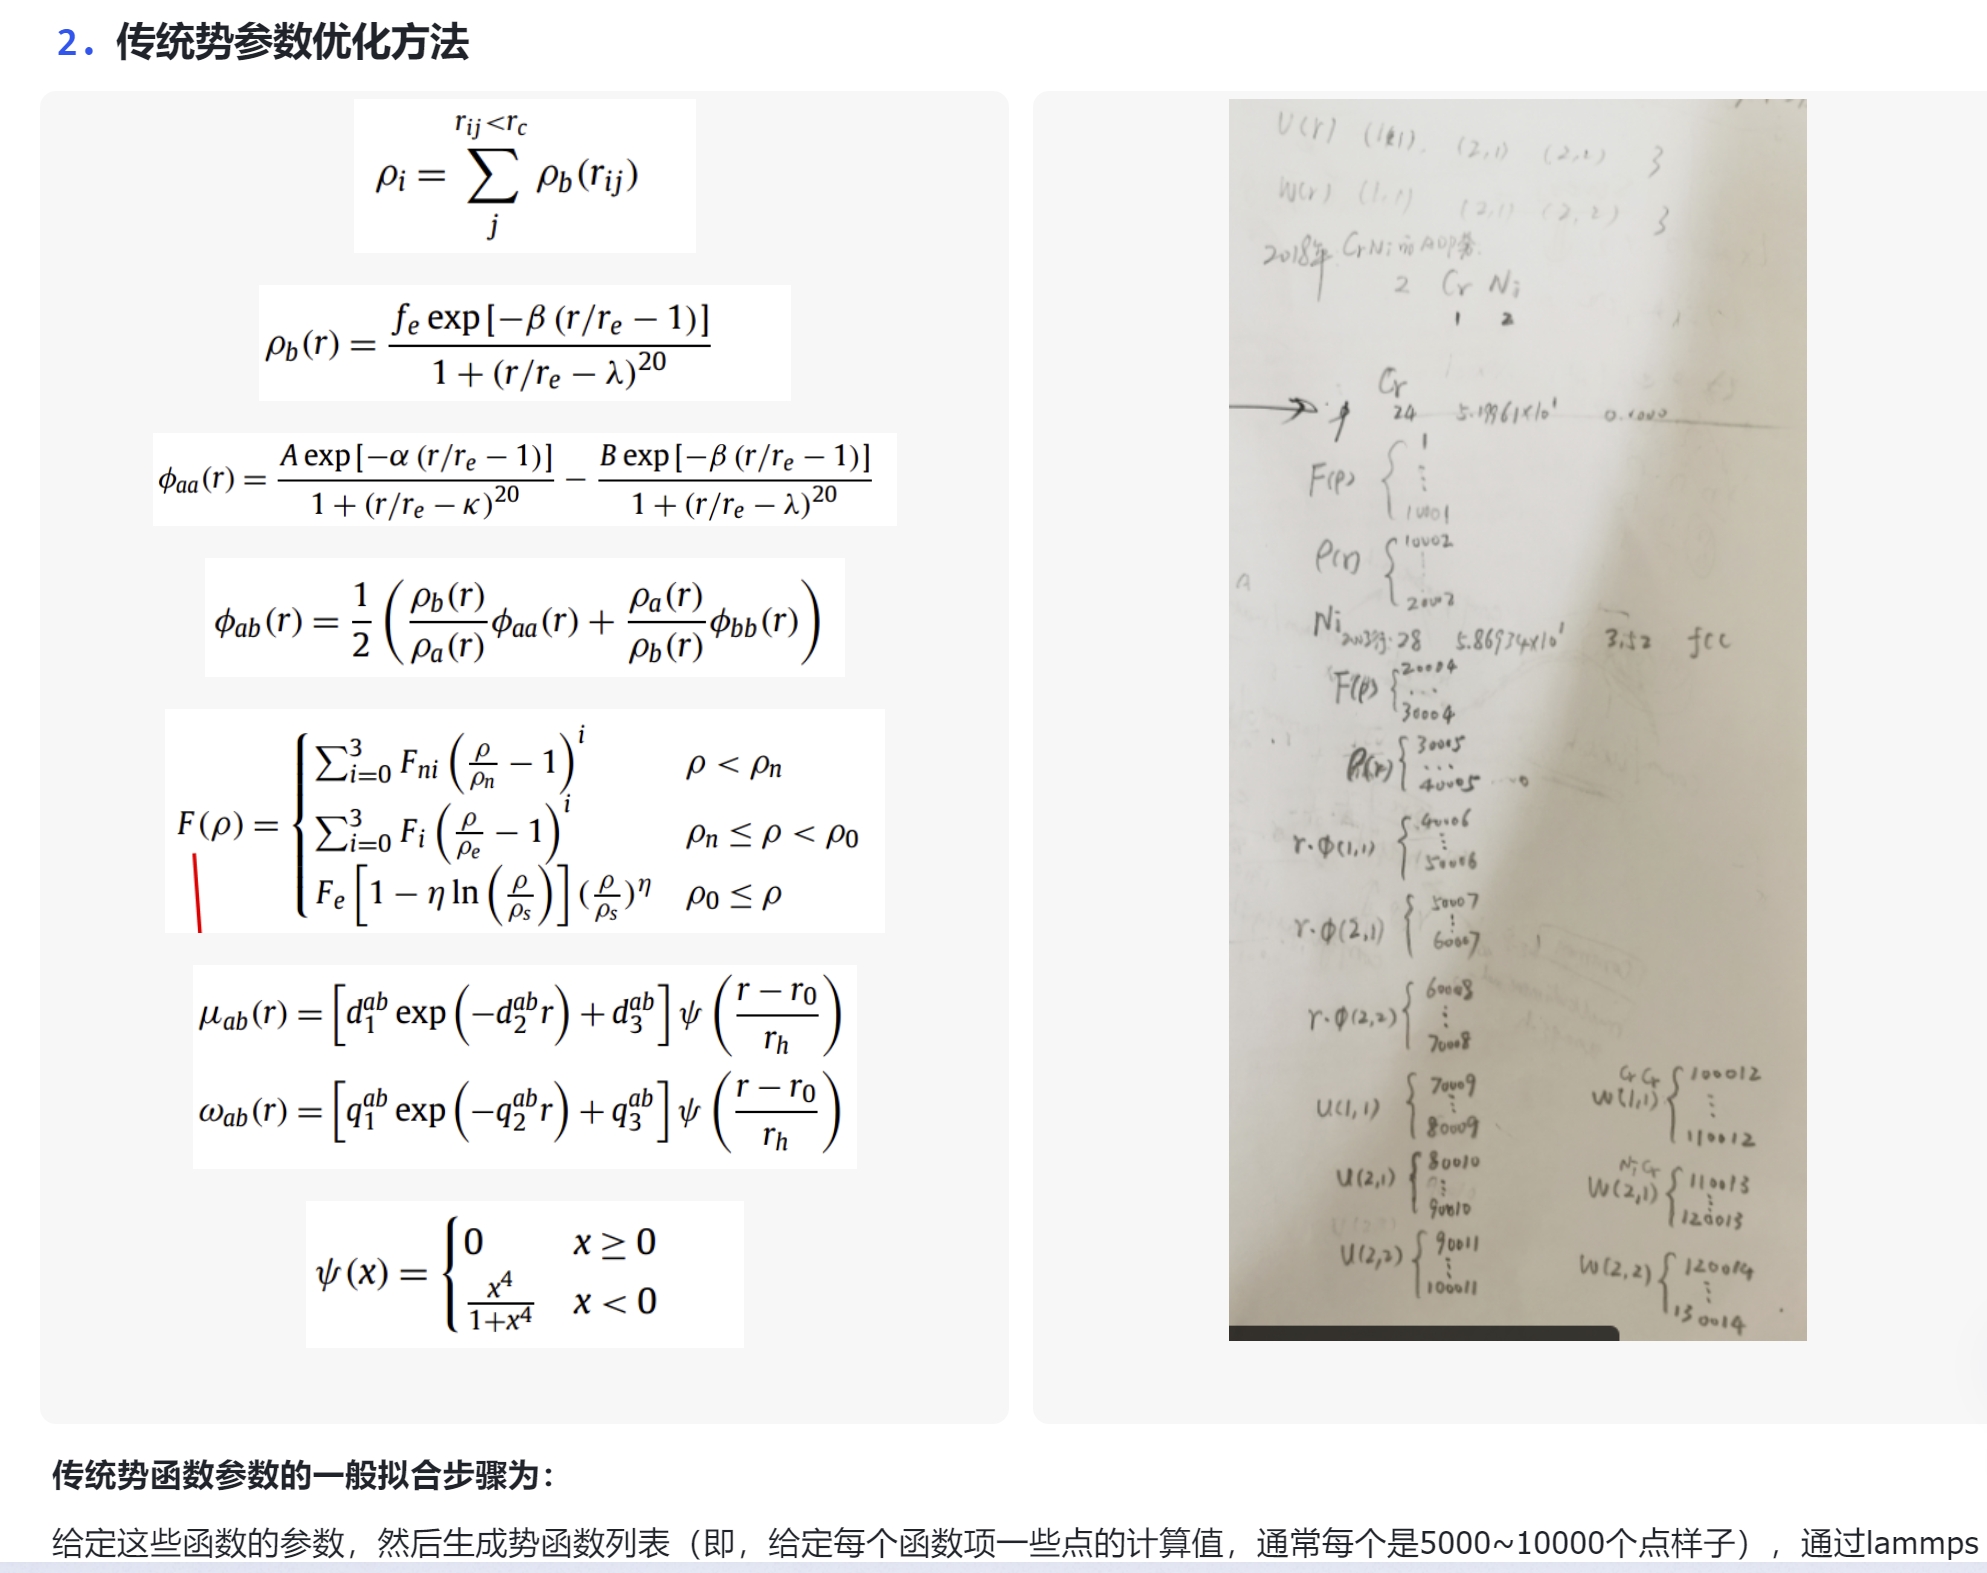 2. 传统势参数优化方法
r_{ij}<r_c
ρ_i = ∑ ρ_b(r_{ij})
j
ρ_b(r) = \frac{f_e exp[−β(r/r_e − 1)]}{1 + (r/r_e − λ)^{20}}
ϕ_{aa}(r) = \frac{A exp[−α(r/r_e − 1)]}{1 + (r/r_e − κ)^{20}} − \frac{B exp[−β(r/r_e − 1)]}{1 + (r/r_e − λ)^{20}}
ϕ_{ab}(r) = \frac{1}{2} ( \frac{ρ_b(r)}{ρ_a(r)} ϕ_{aa}(r) + \frac{ρ_a(r)}{ρ_b(r)} ϕ_{bb}(r) )
F(ρ) = {
∑_{i=0}^{3} F_{ni} ( \frac{ρ}{ρ_n} − 1 )^i ρ < ρ_n
∑_{i=0}^{3} F_i ( \frac{ρ}{ρ_e} − 1 )^i ρ_n ≤ ρ < ρ_0
F_e [ 1 − η ln ( \frac{ρ}{ρ_s} ) ] ( \frac{ρ}{ρ_s} )^η ρ_0 ≤ ρ
μ_{ab}(r) = [ d_1^{ab} exp ( −d_2^{ab} r ) + d_3^{ab} ] ψ ( \frac{r − r_0}{r_h} )
ω_{ab}(r) = [ q_1^{ab} exp ( −q_2^{ab} r ) + q_3^{ab} ] ψ ( \frac{r − r_0}{r_h} )
ψ(x) = {
0 x ≥ 0
\frac{x^4}{1+x^4} x < 0
U(r) (1,1), (2,1) (2,2) }
W(r) (1,1) (2,1) (2,2) }
2018年 CrNi的ADP势
2 Cr Ni
1 2
Cr
24 5.19961×10^1
F(ρ) { 1
⋮
10001
ρ(r) { 10002
⋮
20002
Ni
20003行: 28 5.86934×10^1 3.52 fcc
F(ρ) { 20004
...
30004
ρ(r) { 30005
...
40005
r·ϕ(1,1) { 40006
⋮
50006
r·ϕ(2,1) { 50007
⋮
60007
r·ϕ(2,2) { 60008
⋮
70008
U(1,1) { 70009
⋮
80009
U(2,1) { 80010
⋮
90010
U(2,2) { 90011
⋮
100011
Cr Cr
W(1,1) { 100012
⋮
110012
Ni Cr
W(2,1) { 110013
⋮
120013
W(2,2) { 120014
⋮
130014
传统势函数参数的一般拟合步骤为：
给定这些函数的参数，然后生成势函数列表（即，给定每个函数项一些点的计算值，通常每个是5000~10000个点样子），通过lammps